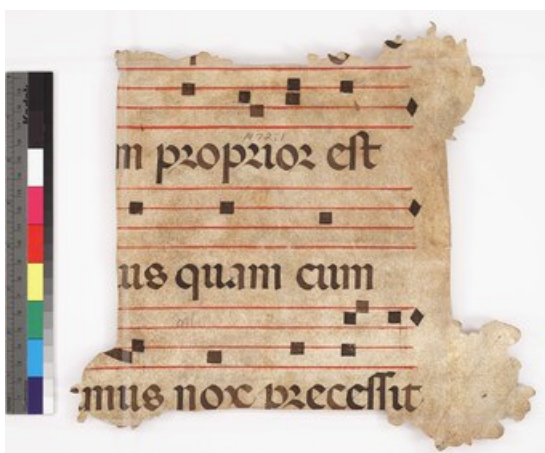 m proprior est
us quam cum
mus nox precessit